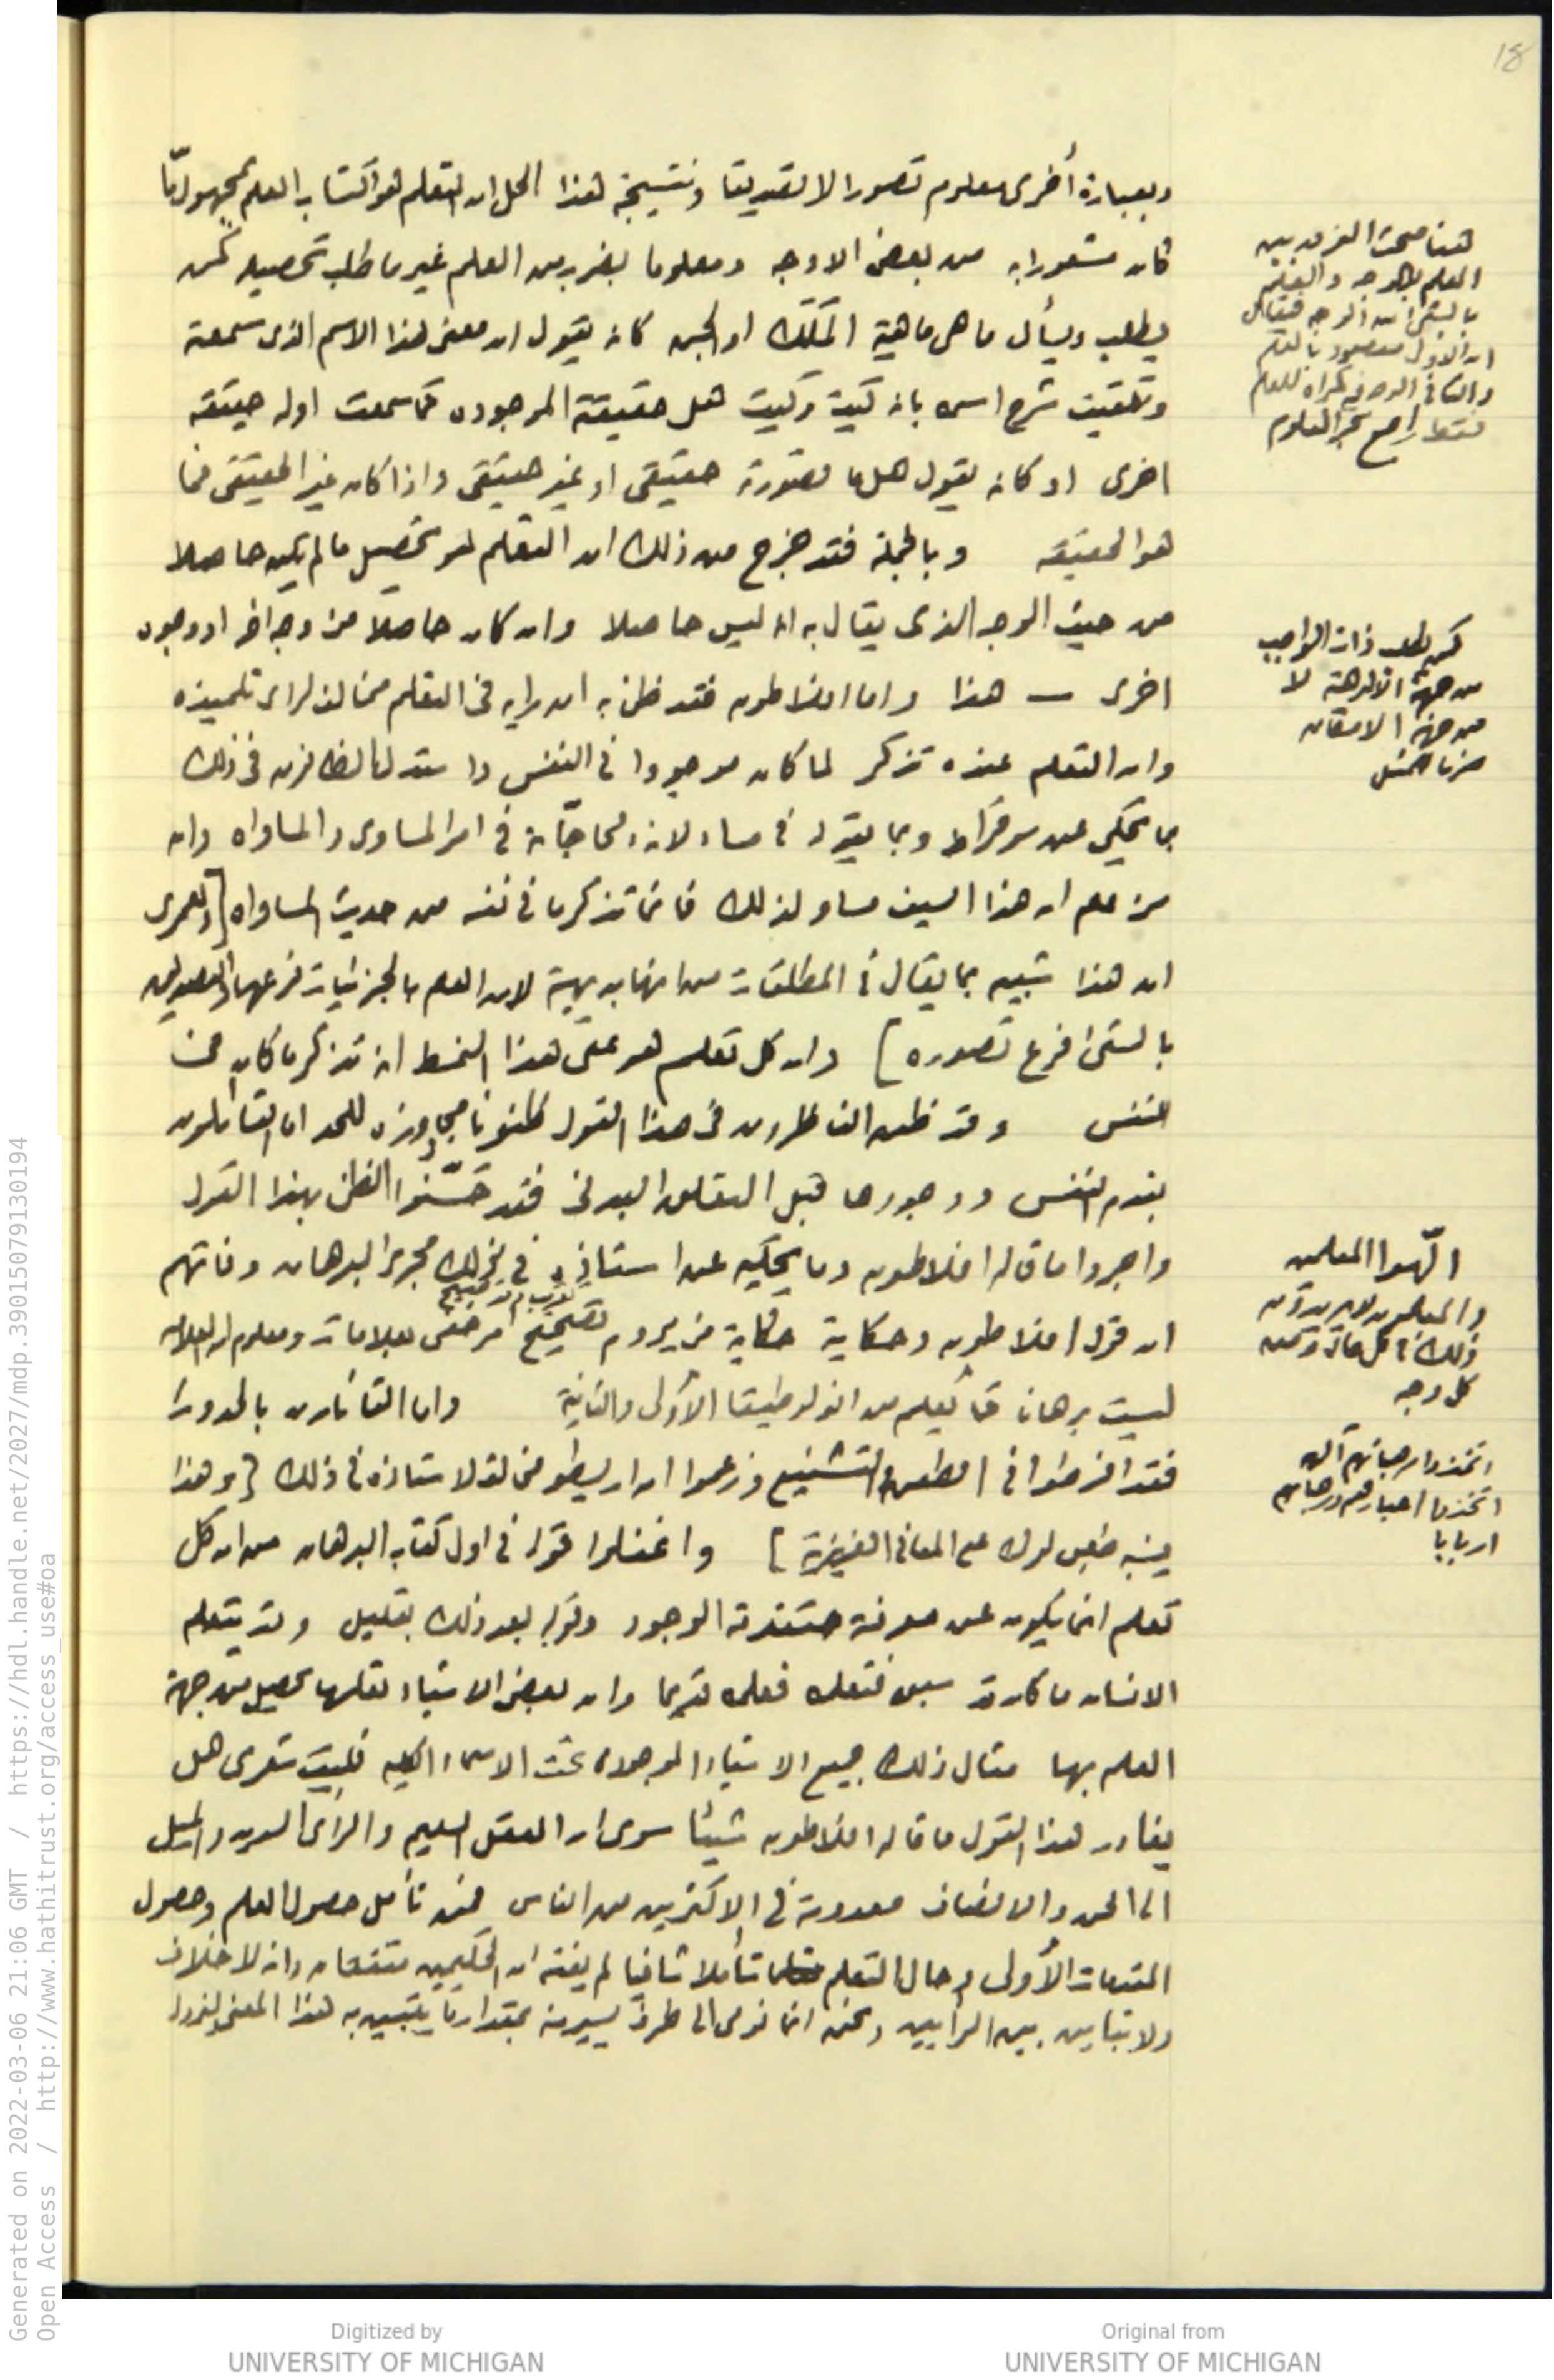 18
وبعبارة أخرى معلوم تصورا لا تصديقا ونتيجة هذا الحل ان التعلم هو اكتساب العلم بمجهول ما
كان مشعورا به من بعض الاوجه ومعلوما بضرب من العلم غير ما طلب تحصيله كمن
يطلب ويسأل ما هى ماهية الملك او الجن كانه يقول ان معنى هذا الاسم الذى سمعته
وتلقيت شرح اسمه بانه كيت وكيت هل حقيقة الموجود كما سمعت او له حقيقة
اخرى او كانه يقول هل ما تصورته حقيقى او غير حقيقى واذا كان غير الحقيقى فما
هو الحقيقة وبالجملة فقد خرج من ذلك ان التعلم هو تحصيل ما لم يكن حاصلا
من حيث الوجه الذى يقال به انه ليس حاصلا وان كان حاصلا من وجه اخر او وجوه
اخرى — هذا واما افلاطون فقد ظن به ان رايه فى التعلم مخالف لراى تلميذه
وان التعلم عنده تذكر لما كان موجودا فى النفس واستدل الظانون فى ذلك
بما يحكى عن سوقراط وبما يقوله فى مساءلاته ومحاجاته فى امر المساوى والمساواه وانه
من علم ان هذا السيف مساو لذلك فانما تذكر ما فى نفسه من حديث المساواه [ولعمرى
ان هذا شبيه بما يقال فى المطلقات من انها بديهية لان العلم بالجزئيات فرعها والتصديق
بالشئ فرع تصوره] وان كل تعلم هو على هذا النمط انه تذكر ما كان فى
النفس وقد ظن الناظرون فى هذا القول ظنونا مجاوزة للحد اما القائلون
بقدم النفس ووجودها قبل التعلق البدنى فقد حسّنوا الظن بهذا القول
واجروا ما قاله افلاطون وما يحكيه عن استاذه فى ذلك مجرى البرهان وفاتهم
ان قول افلاطون وحكايته حكاية من يروم تصحيح امر خفى بعلامات ومعلوم ان العلامه
ليست برهانا كما تعلم من انولوطيقا الأولى والثانية واما القائلون بالحدوث
فقد افرطوا فى الطعن والتشنيع وزعموا ان اريسطو مخالف لاستاذه فى ذلك [وهذا
يشبه طعن لوك على المعانى الغريزية] واغفلوا قوله فى اول كتاب البرهان من ان كل
تعلم انما يكون عن معرفة متقدمة الوجود وقوله بعد ذلك بقليل وقد يتعلم
الانسان ما كان قد سبق فتعلمه قديما وان بعض الاشياء تعلمها يحصل من جهة
العلم بها مثال ذلك جميع الاشياء الموجوده تحت الاسماء الكليه فليت شعرى هل
يغادر هذا القول ما قاله افلاطون شيئا سوى ان العقل السليم والراى السديد والميل
الى الحق والانصاف معدومة فى الاكثرين من الناس فمن تأمل حصول العلم وحصول
المقدمات الأولى وحال التعلم تأملا شافيا لم يفته ان الحكيمين متفقان وانه لا خلاف
ولا تباين بين الرأيين ونحن انما نومى الى طرف يسير منه بمقدار ما يتبين به هذا المعنى
هنا مبحث الفرق بين
العلم بالوجه والعلم
بالشئ من الوجه فيقال
ان الاول مقصود بالعلم
والثانى الوجه مرآة للعلم
فقط راجع بحر العلوم
كمن يطلب ذات الواجب
من جهة الالوهية لا
من جهة الامكان
الّهوا المعلمين
والمعلمون لا يريدون
ذلك فى كل حال ومن
كل وجه
اتخذوا رهبانهم آلهه
اتخذوا احبارهم ورهبانهم
اربابا
Generated on 2022-03-06 21:06 GMT / https://hdl.handle.net/2027/mdp.39015079130194
Open Access / http://www.hathitrust.org/access_use#oa
Digitized by
UNIVERSITY OF MICHIGAN
Original from
UNIVERSITY OF MICHIGAN